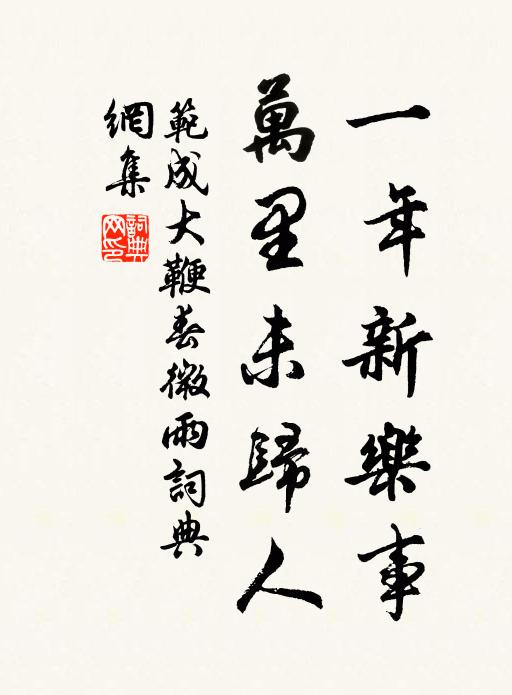 一年新樂事
萬里未歸人
範成大鞭春微雨詞典
網集
詞典
網印